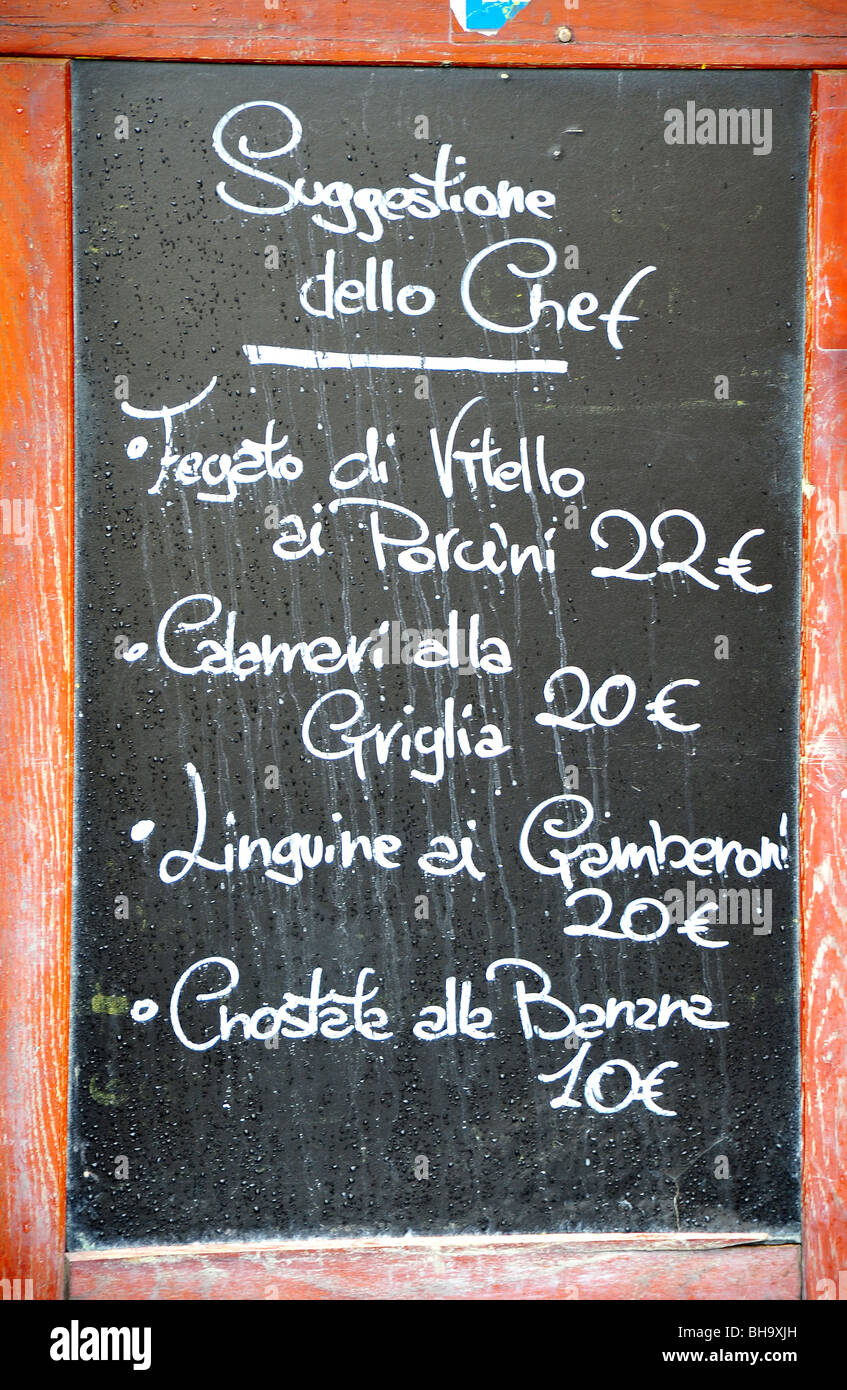 Suggestione
dello Chef
• Fegato di Vitello
ai Porcini 22€
• Calamari alla
Griglia 20€
• Linguine ai Gamberoni
20€
• Crostata alla Banana
10€
alamy
Image ID: BH9XJH
www.alamy.com